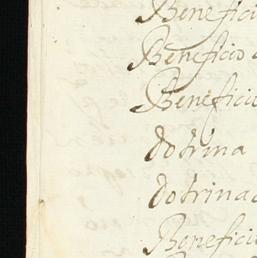 Benefici
Beneficio
Beneficio
dotrina
dotrina
Beneficio